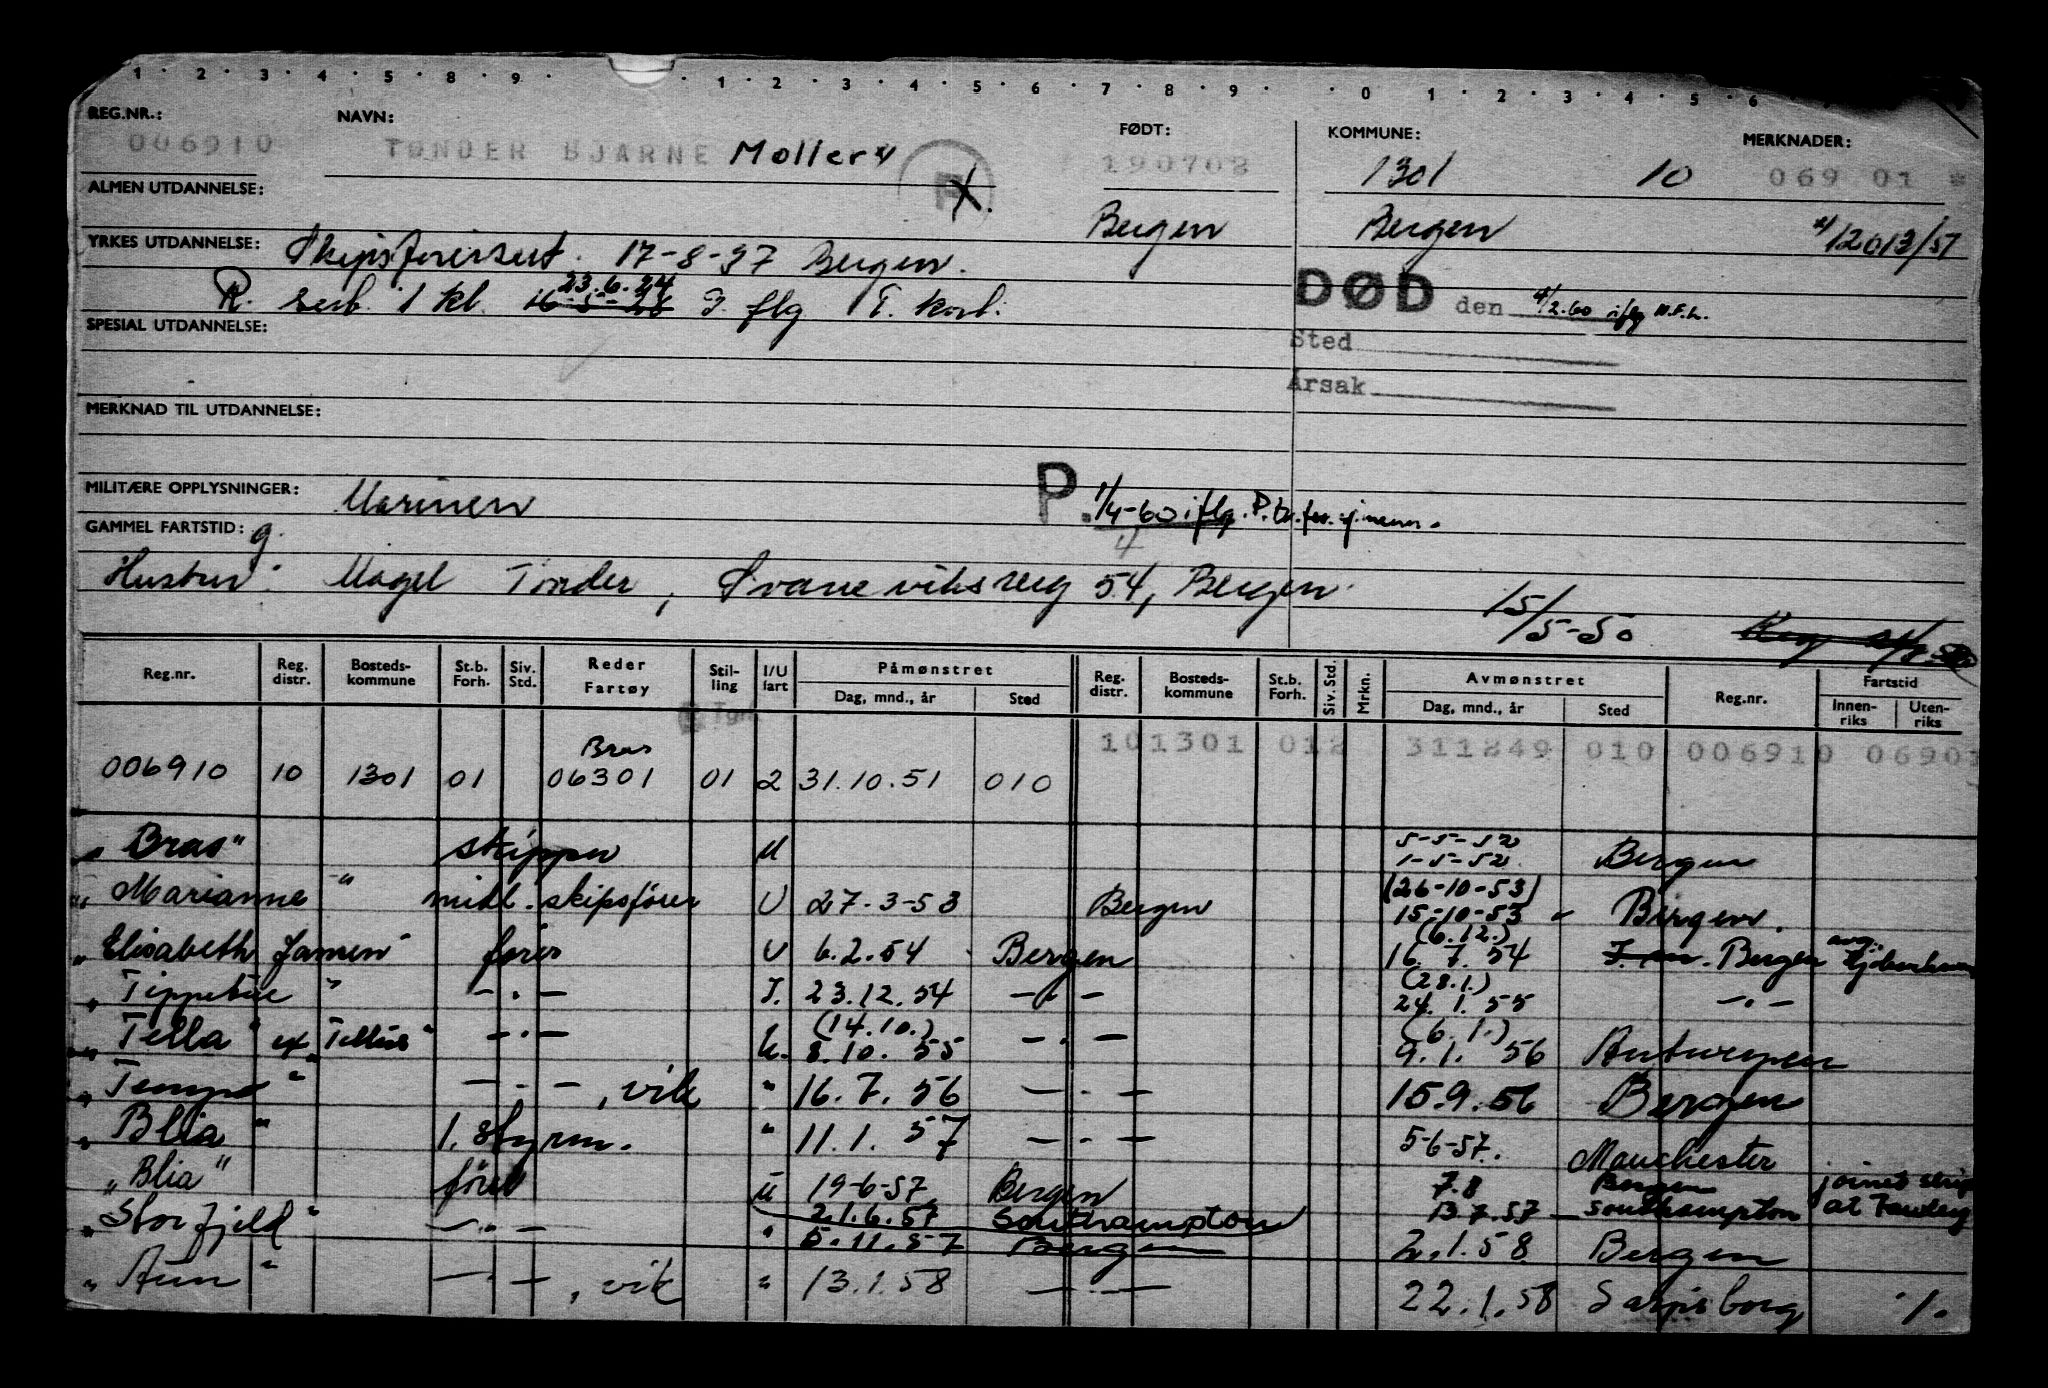 1 · 2 · 3 · 4 · 5 · 8 · 9 · · 1 · 2 · 3 · 4 · 5 · 6 · 7 · 8 · 9 · · 0 · 1 · 2 · 3 · 4 · 5 · 6
REG.NR.: NAVN: FØDT: KOMMUNE: MERKNADER:
006910 TØNDER BJARNE Moller x/ F 190708 1301 10 069 01 *
ALMEN UTDANNELSE: Bergen Bergen x/12013/57
YRKES UTDANNELSE: Skipsförersert. 17-8-37 Bergen.
R. serb. 1 kl. 16-5-28 23.6.24 I flg T. kort.
DØD den 4/2.60 iflg N.F.L.
SPESIAL UTDANNELSE:
Sted
Årsak
MERKNAD TIL UTDANNELSE:
MILITÆRE OPPLYSNINGER: Marinen P. 1/4-60 iflg. P.tr. for sjømenn.
GAMMEL FARTSTID: g.
Hustru: Magel Tönder, Svaneviksveg 54, Bergen.
15/5-50
Reg.nr. Reg. distr. Bosteds-kommune St.b. Forh. Siv. Std. Reder Fartøy Stil-ling I/U fart Påmønstret Dag, mnd., år Sted Reg. distr. Bosteds-kommune St.b. Forh. Siv. Std. Mrkn. Avmønstret Dag, mnd., år Sted Reg.nr. Fartstid Innen-riks Uten-riks
101301 012 311249 010 006910 06901
Bras
006910 10 1301 01 06301 01 2 31.10.51 010
5-5-52
"Bras" skipper U 1-5-52 Bergen
(26-10-53)
"Marianne" midl. skipsförer U 27.3-53 Bergen 15-10-53 Bergen.
(6.12.)
"Elisabeth Jansen" förer U 6.2.54 Bergen 16.7.54 Bergen
(28.1.)
"Tippetue" -.- I. 23.12.54 -.- 24.1.55 -.-
(14.10.) (6.1.)
"Tella" ex "Tellus" -.- U. 8.10.55 -.- 9.1.56 Antwerpen
"Tempo" -.-, vik " 16.7.56 -.- 15.9.56 Bergen
"Blia" 1. Styrm. " 11.1.57 -.- 5-6-57. Manchester
"Blia" förer U 19-6-57 Bergen 7.8 Bergen joined ship
21.6.57 Southampton 13.7.57 Southampton at Fawley
"Storfjeld" -.- " 5.11.57 Bergen 2.1.58 Bergen
"Aun" -.-, vik " 13.1.58 -.- 22.1.58 Sarpsborg ./.